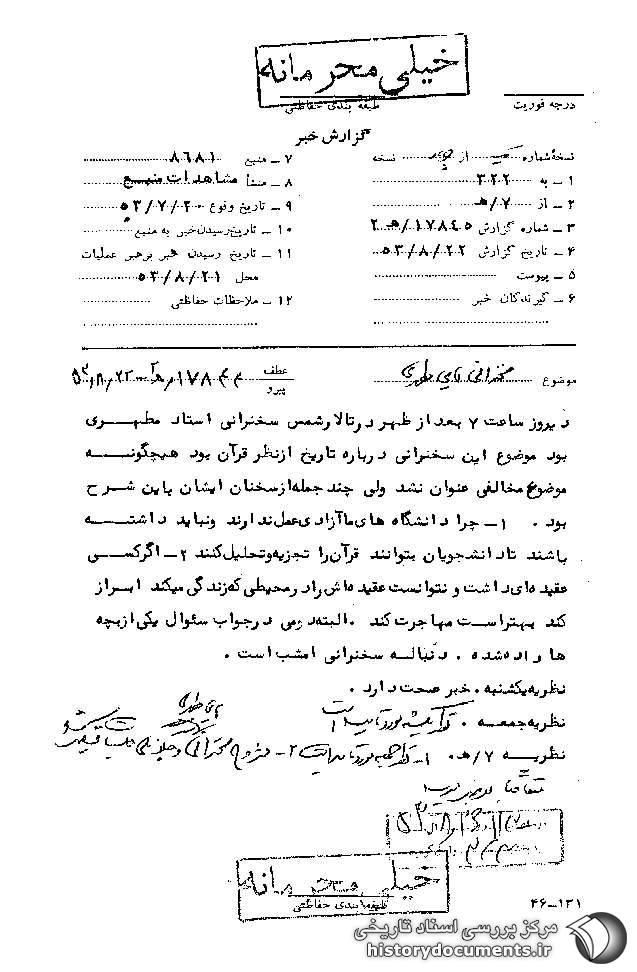 خیلی محرمانه
طبقه بندی حفاظتی
درجه فوریت
گزارش خبر
نسخهٔ شماره یک از دو نسخه
۱ ـ به ۳۲۲
۲ ـ از ۷/هـ
۳ ـ شماره گزارش ۱۷۸۴۵/هـ ۲
۴ ـ تاریخ گزارش ۵۳/۸/۲۲
۵ ـ پیوست
۶ ـ گیرندگان خبر
۷ ـ منبع ۸۶۸۱
۸ ـ منشأ مشاهدات منبع
۹ ـ تاریخ وقوع ۵۳/۷/۲۰
۱۰ ـ تاریخ رسیدن خبر به منبع
۱۱ ـ تاریخ رسیدن خبر برهبر عملیات
محل ۵۳/۸/۲۱
۱۲ ـ ملاحظات حفاظتی
موضوع سخنرانی آقای مطهری
عطف
پیرو
۱۷۸۴۴/هـ ۲ ـ ۵۳/۸/۲۲
دیروز ساعت ۷ بعد از ظهر در تالار شمس سخنرانی استاد مطهری
بود موضوع این سخنرانی درباره تاریخ از نظر قرآن بود هیچگونه
موضوع مخالفی عنوان نشد ولی چند جمله از سخنان ایشان باین شرح
بود . ۱ ـ چرا دانشگاه های ما آزادی عمل ندارند و نباید داشته
باشند تا دانشجویان بتوانند قرآن را تجزیه و تحلیل کنند ۲ ـ اگر کسی
عقیده ای داشت و نتوانست عقیده اش را در محیطی که زندگی میکند ابراز
کند بهتر است مهاجرت کند . البته دومی در جواب سئوال یکی از بچه
ها داده شده . دنباله سخنرانی امشب است .
نظریه یکشنبه . خبر صحت دارد .
نظریه جمعه .
نظریه ۷/هـ . ۱ ـ ۲ ـ مشروح سخنرانی
متعاقبا
خیلی محرمانه
طبقه بندی حفاظتی
۴۶ ـ ۱۳۱
مرکز بررسی اسناد تاریخی
historydocuments.ir